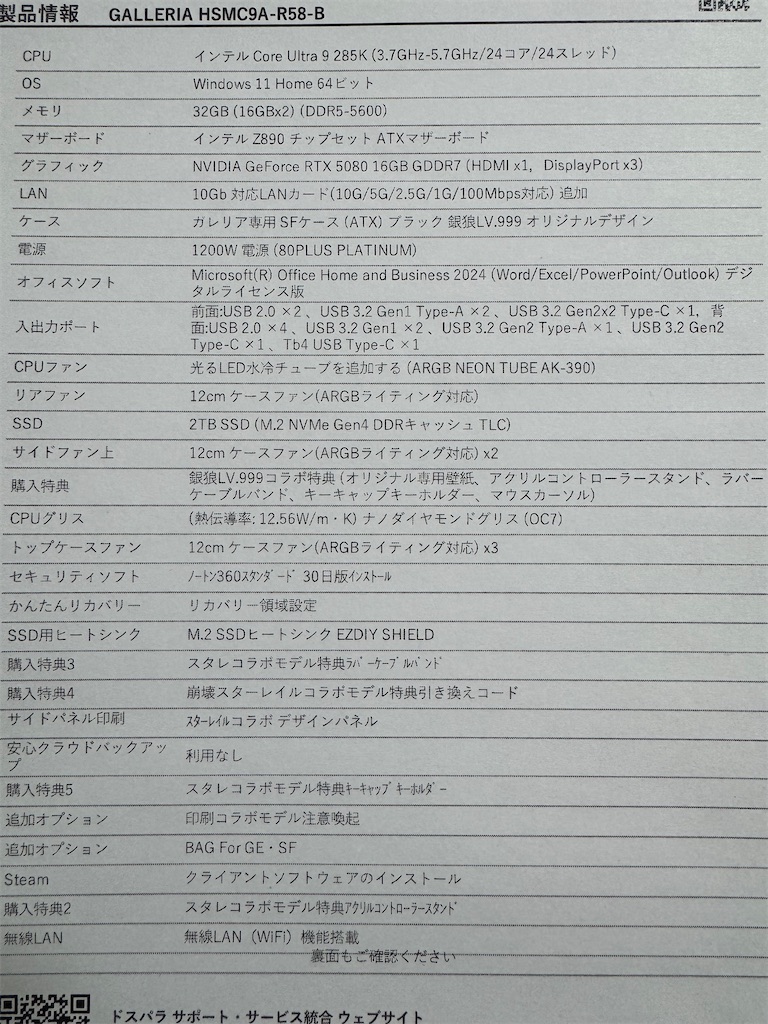 製品情報 GALLERIA HSMC9A-R58-B
CPU インテル Core Ultra 9 285K (3.7GHz-5.7GHz/24コア/24スレッド)
OS Windows 11 Home 64ビット
メモリ 32GB (16GBx2) (DDR5-5600)
マザーボード インテル Z890 チップセット ATXマザーボード
グラフィック NVIDIA GeForce RTX 5080 16GB GDDR7 (HDMI x1, DisplayPort x3)
LAN 10Gb 対応LANカード(10G/5G/2.5G/1G/100Mbps対応) 追加
ケース ガレリア専用 SFケース (ATX) ブラック 銀狼LV.999 オリジナルデザイン
電源 1200W 電源 (80PLUS PLATINUM)
オフィスソフト Microsoft(R) Office Home and Business 2024 (Word/Excel/PowerPoint/Outlook) デジ
タルライセンス版
入出力ポート 前面:USB 2.0 ×2、USB 3.2 Gen1 Type-A ×2、USB 3.2 Gen2x2 Type-C ×1, 背
面:USB 2.0 ×4、USB 3.2 Gen1 ×2、USB 3.2 Gen2 Type-A ×1、USB 3.2 Gen2
Type-C ×1、Tb4 USB Type-C ×1
CPUファン 光るLED水冷チューブを追加する (ARGB NEON TUBE AK-390)
リアファン 12cm ケースファン(ARGBライティング対応)
SSD 2TB SSD (M.2 NVMe Gen4 DDRキャッシュ TLC)
サイドファン上 12cm ケースファン(ARGBライティング対応) x2
購入特典 銀狼LV.999コラボ特典 (オリジナル専用壁紙、アクリルコントローラースタンド、ラバー
ケーブルバンド、キーキャップキーホルダー、マウスカーソル)
CPUグリス (熱伝導率: 12.56W/m・K) ナノダイヤモンドグリス (OC7)
トップケースファン 12cm ケースファン(ARGBライティング対応) x3
セキュリティソフト ﾉｰﾄﾝ360ｽﾀﾝﾀﾞｰﾄﾞ 30日版ｲﾝｽﾄｰﾙ
かんたんリカバリー リカバリー領域設定
SSD用ヒートシンク M.2 SSDヒートシンク EZDIY SHIELD
購入特典3 スタレコラボモデル特典ﾗﾊﾞｰｹｰﾌﾞﾙﾊﾞﾝﾄﾞ
購入特典4 崩壊スターレイルコラボモデル特典引き換えコード
サイドパネル印刷 ｽﾀｰﾚｲﾙコラボ デザインパネル
安心クラウドバックアッ
プ 利用なし
購入特典5 スタレコラボモデル特典ｷｰｷｬｯﾌﾟｷｰﾎﾙﾀﾞｰ
追加オプション 印刷コラボモデル注意喚起
追加オプション BAG For GE・SF
Steam クライアントソフトウェアのインストール
購入特典2 スタレコラボモデル特典ｱｸﾘﾙｺﾝﾄﾛｰﾗｰｽﾀﾝﾄﾞ
無線LAN 無線LAN (WiFi) 機能搭載
裏面もご確認ください
ドスパラ サポート・サービス統合 ウェブサイト